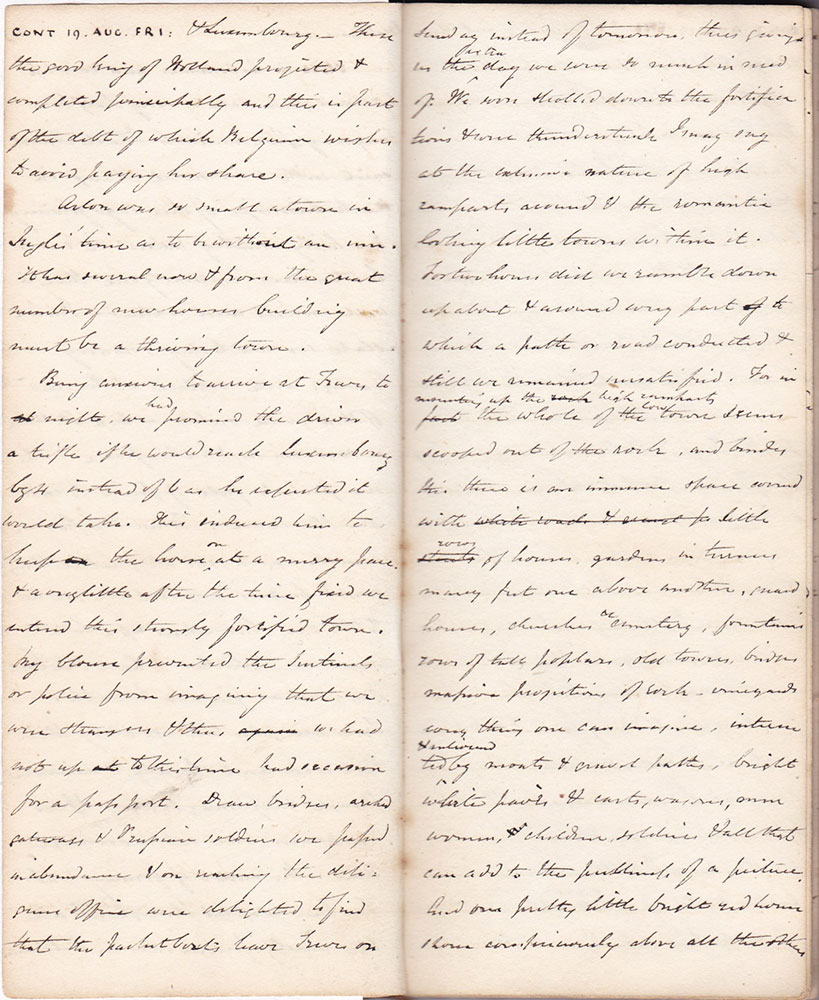 CONT 19. AUG. FRI: & Luxembourg. — These
the good King of Holland projected &
completed principally and this is part
of the debt of which Belgium wishes
to avoid paying her share.
Arlon was so small a town in
Inglis' time as to be without an inn.
It has several now & from the great
number of new houses building
must be a thriving town.
Being anxious to arrive at Treves to
night, we had promised the driver
a trifle if he would reach Luxembourg
by 4 instead of 6 as he expected it
would take. This induced him to
keep the horse on at a merry pace.
& a very little after the time fixed we
entered this strongly fortified town.
My blouse prevented the Sentinels
or police from imagining that we
were strangers & thus again we had
not up at to this time had occasion
for a passport. Draw bridges, arched
gateways & Prussian soldiers we passed
in abundance & on reaching the dili=
gence office were delighted to find
that the packet boats leave Treves on
Sunday instead of tomorrow, thus giving
us the extra day we were so much in need
of. We soon strolled down to the fortifica
tions & were thunderstruck I may say
at the extensive nature of high
ramparts around & the romantic
looking little towns within it.
For two hours did we ramble down
up about & around every part of to
which a path or road conducted &
still we remained unsatisfied. For in
mounting up the rock high ramparts
fact the whole of the low town seems
scooped out of the rock, and besides
this there is an immense space covered
with white roads & little
rows
streets of houses, gardens in terraces
many feet one above another, guard
houses, churches cemetery, fountains
rows of tall poplars, old towers, bridges
massive projections of rock - vineyards
every thing one can imagine, interse
& enlivened
ted by moats & gravel paths, bright
white & carts, waggons, men
women, & children, soldiers & all that
can add to the prettiness of a picture.
And one pretty little bright red house
shone conspicuously above all the others